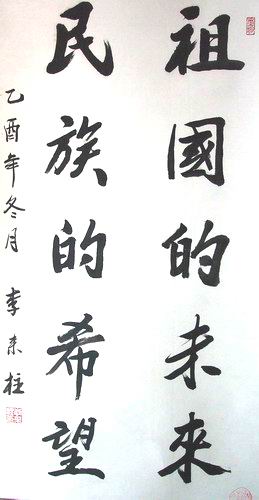 祖國的未來
民族的希望
乙酉年冬月 李來柱